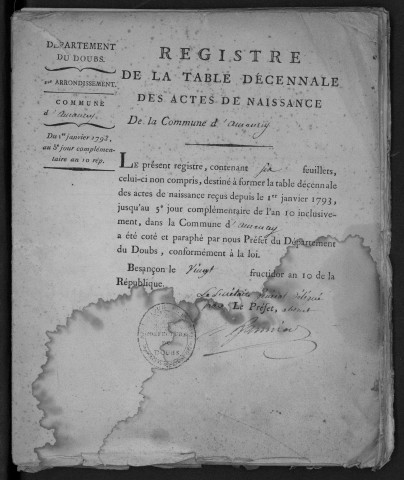 DÉPARTEMENT
DU DOUBS.
ARRONDISSEMENT.
COMMUNE
d'
Du 1er janvier 1793,
au 5e jour complémen-
taire an 10 rép.
REGISTRE
DE LA TABLE DÉCENNALE
DES ACTES DE NAISSANCE
De la Commune d'
LE présent registre, contenant six feuillets,
celui-ci non compris, destiné à former la table décennale
des actes de naissance reçus depuis le 1er janvier 1793,
jusqu'au 5e jour complémentaire de l'an 10 inclusive-
ment, dans la Commune d'
a été coté et paraphé par nous Préfet du Département
du Doubs, conformément à la loi.
Besançon le Vingt fructidor an 10 de la
République.
Le Secrétaire Général délégué
Le Préfet, absent
DU
DOUBS